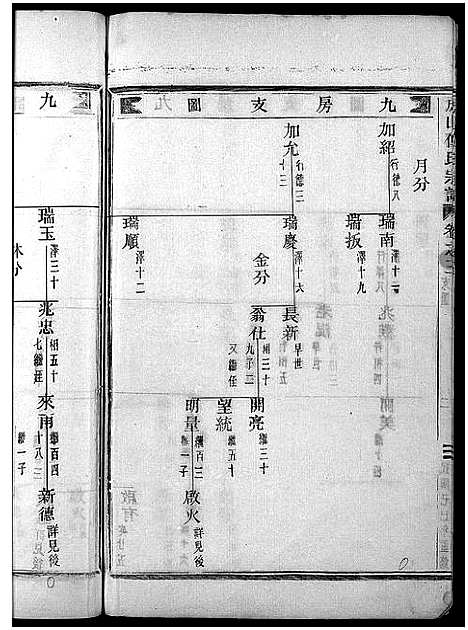 九房支圖
月分
加紹 行德八
加允 行德三十三
瑞南 澤十一
瑞扳 澤十九
瑞慶 澤十六
瑞順 澤十二
金分
長新 早世
翁仕 相三十九子二又繼任
開亮 繼三十
望統 繼五十
明量 繼百三一子
啟火 詳見後
九
瑞玉 澤三十
兆忠 相五十七繼姪
來甬 繼百四十八二
一子
新德 詳見後